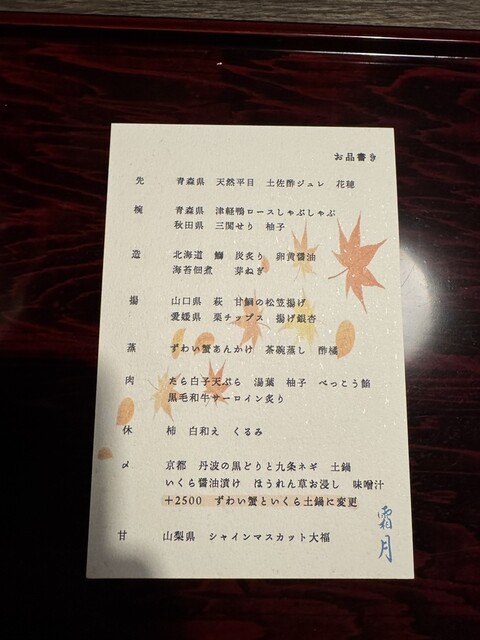 お品書き
先 青森県 天然平目 土佐酢ジュレ 花穂
椀 青森県 津軽鴨ロースしゃぶしゃぶ
秋田県 三関せり 柚子
造 北海道 鰤 炭炙り 卵黄醤油
海苔佃煮 芽ねぎ
揚 山口県 萩 甘鯛の松笠揚げ
愛媛県 栗チップス 揚げ銀杏
蒸 ずわい蟹あんかけ 茶碗蒸し 酢橘
肉 たら白子天ぷら 湯葉 柚子 べっこう餡
黒毛和牛サーロイン炙り
休 柿 白和え くるみ
〆 京都 丹波の黒どりと九条ネギ 土鍋
いくら醤油漬け ほうれん草お浸し 味噌汁
+2500 ずわい蟹といくら土鍋に変更
甘 山梨県 シャインマスカット大福
霜月